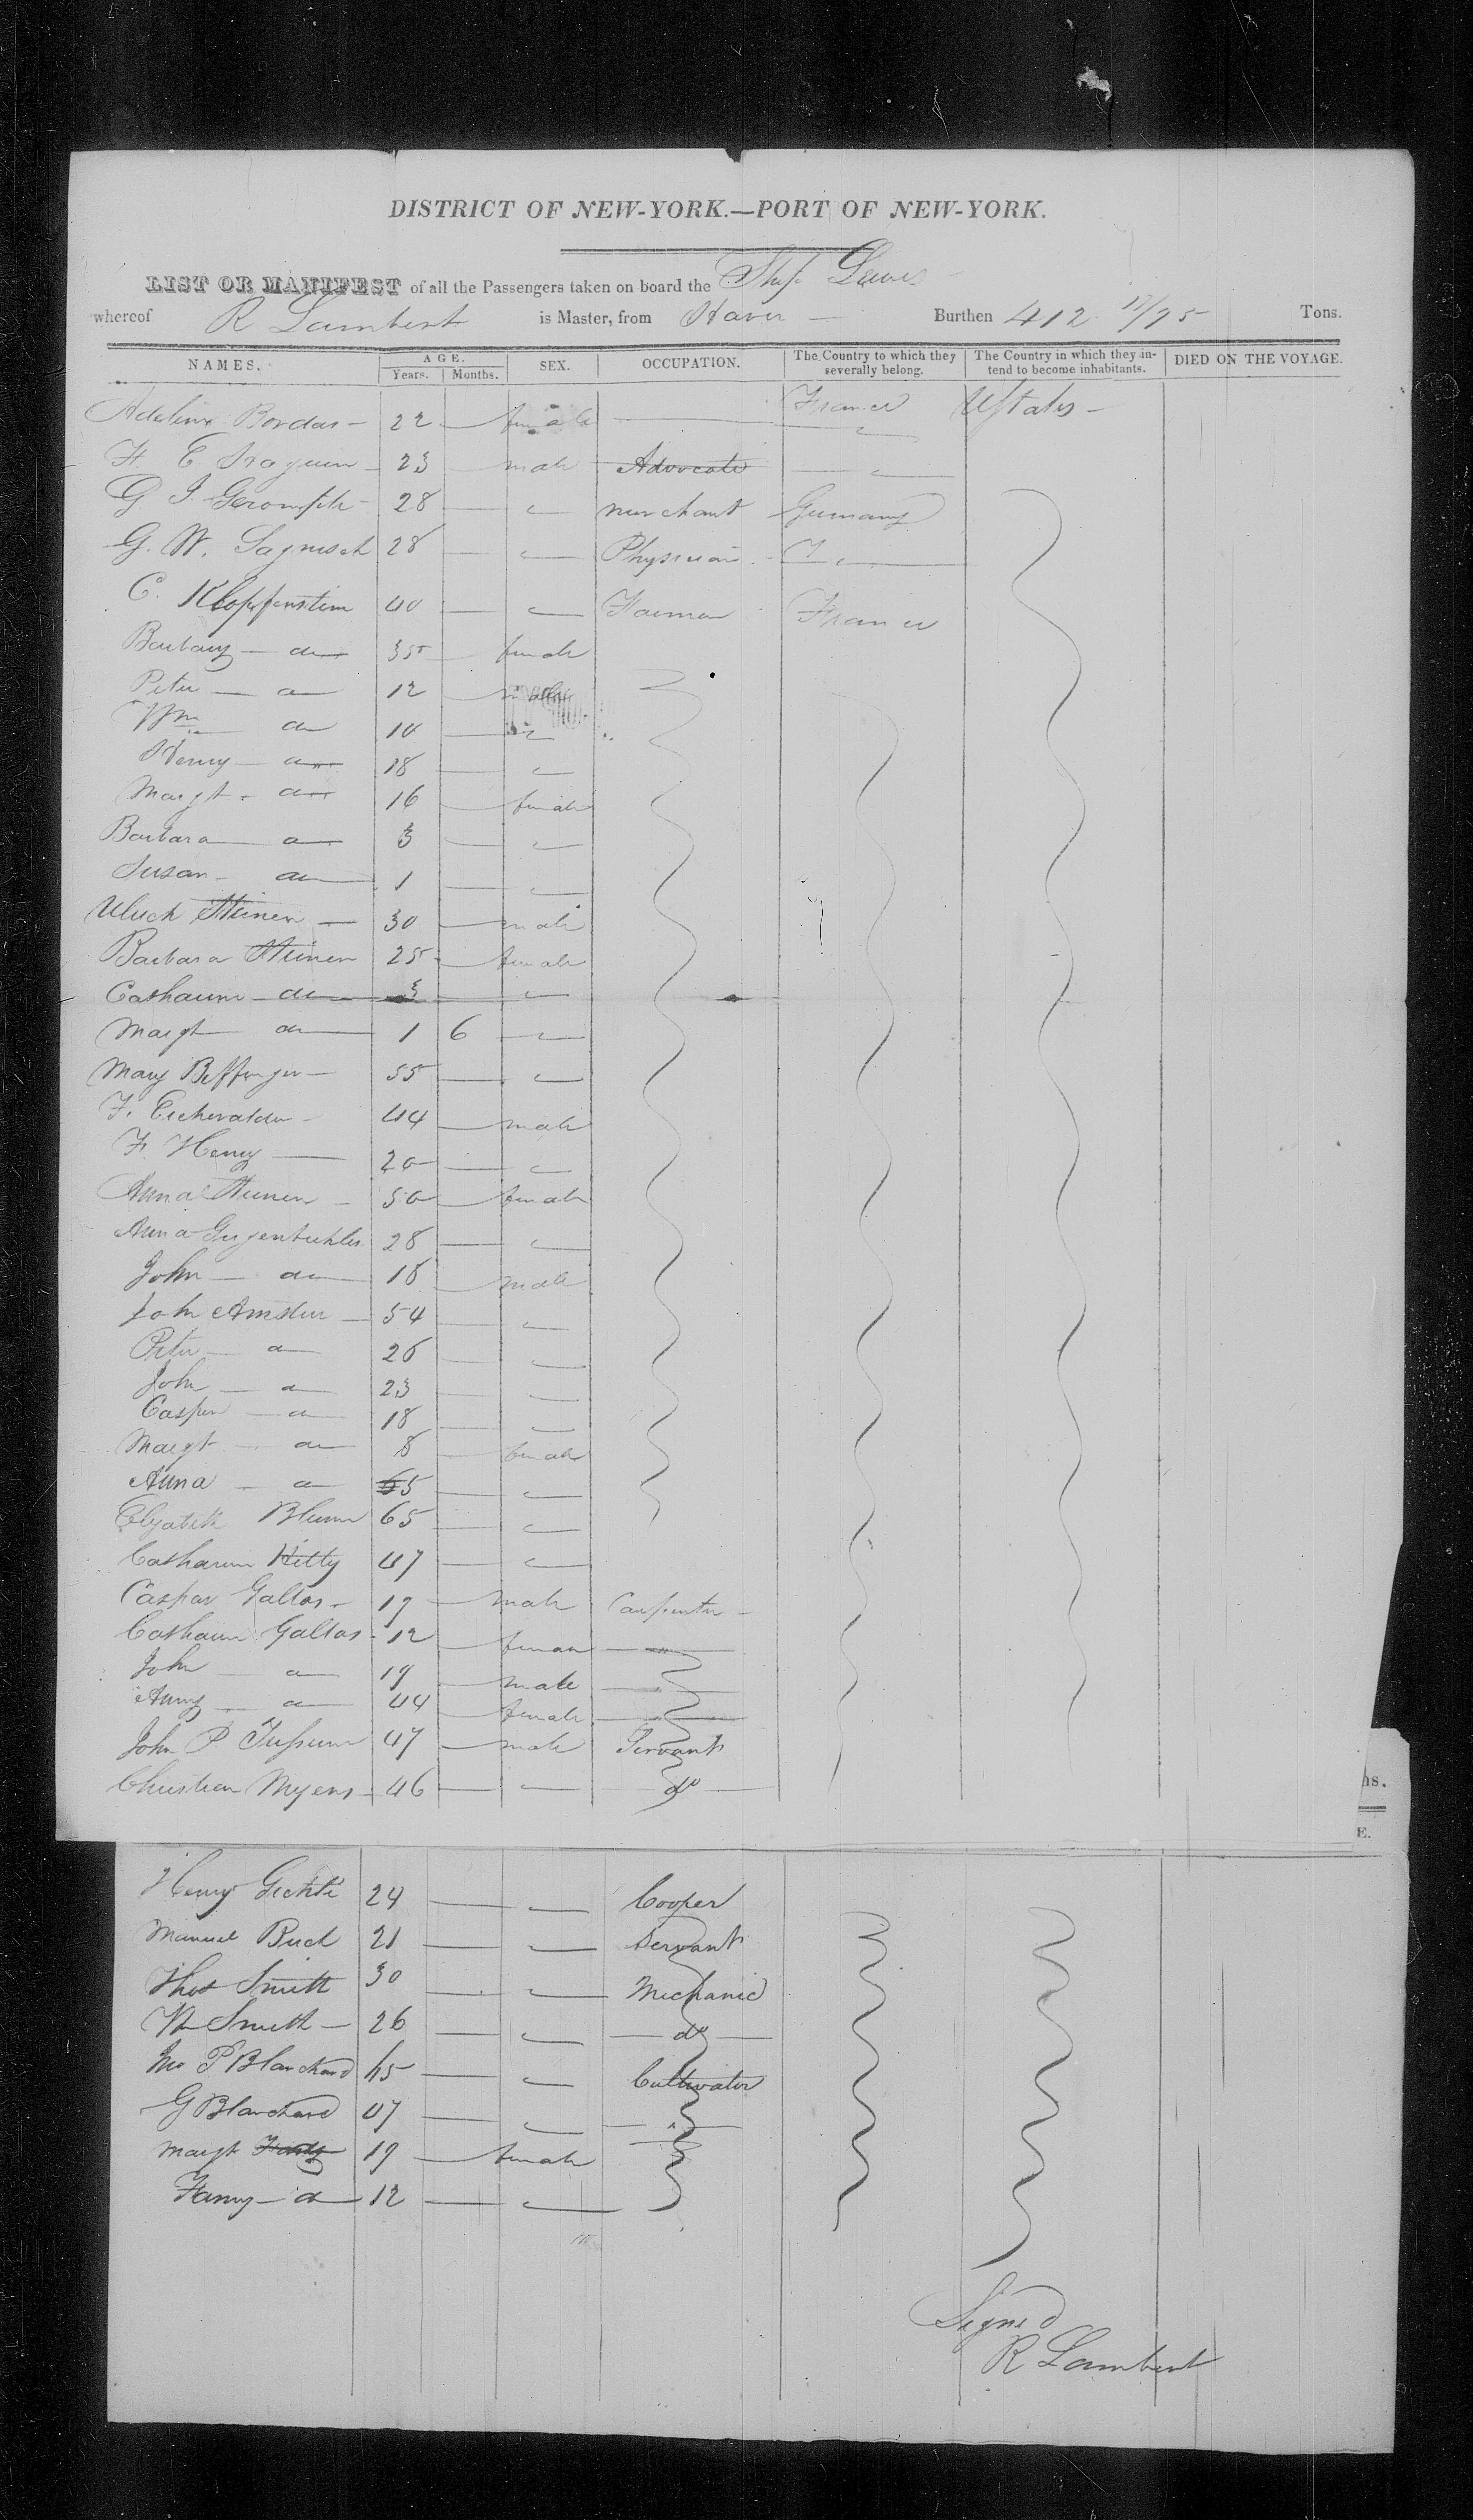 DISTRICT OF NEW-YORK.—PORT OF NEW-YORK.
LIST OR MANIFEST of all the Passengers taken on board the Ship Lewis
whereof R Lambert is Master, from Havre — Burthen 412 17/95 Tons.
NAMES. AGE. Years. Months. SEX. OCCUPATION. The Country to which they severally belong. The Country in which they intend to become inhabitants. DIED ON THE VOYAGE.
Adeline Bordas — 22 — female — France UStates —
F. E 23 — male Advocate — "
G. J. 28 — " merchant Germany
G. W. 28 — " Physician
C. Klopfenstein 40 — " Farmer France
Barbary — do 35 — female
Peter — do 12 — male
Wm do 10 — "
Henry — do 18 — "
Margt. do 16 — female
Barbara do 3 — "
Susan — do 1 — "
Ulrich Steiner — 30 — male
Barbara Steiner 25 — female
Catharine — do 3 — "
Margt do 1 6 "
Mary 55 — "
F. 44 — male
F. Henry — 20 — "
Anna Steiner — 50 — female
Anna Gugenbuhler 28 — "
John — do 18 — male
John Amster — 54 — "
Peter — do 26 — "
John — do 23 — "
Casper — do 18 — "
Margt — do 8 — female
Anna — do 65 — "
Elizabeth Blum 65 — "
Catharine Kitty 47 — "
Caspar Galtos — 19 — male Carpenter —
Catharine Galtos — 12 — female — " —
John — do 19 — male —
Anny — do 44 — female —
John P 47 — male Servant
Christian Myers — 46 — " do
hs.
E.
Henry 24 — " Cooper
Manuel Buch 21 — " Servant
Thos Smith 30 — " Mechanic
Wm Smith — 26 — " — do —
Jno P Blanchard 65 — " Cultivator
G Blanchard 47 — " — " —
Margt 19 — female
Fanny — do — 12 — "
Signed
R Lambert